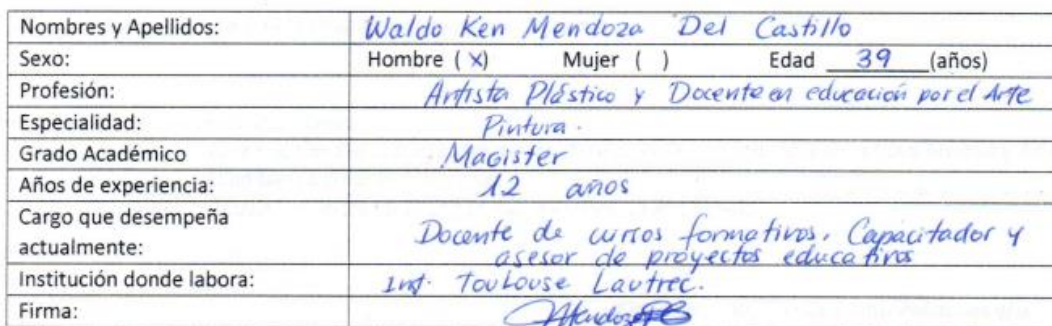 Nombres y Apellidos: Waldo Ken Mendoza Del Castillo
Sexo: Hombre ( X) Mujer ( ) Edad 39 (años)
Profesión: Artista Plástico y Docente en educación por el Arte
Especialidad: Pintura.
Grado Académico Magister
Años de experiencia: 12 años
Cargo que desempeña
actualmente: Docente de cursos formativos, Capacitador y
asesor de proyectos educativos
Institución donde labora: Inst. Toulouse Lautrec.
Firma: